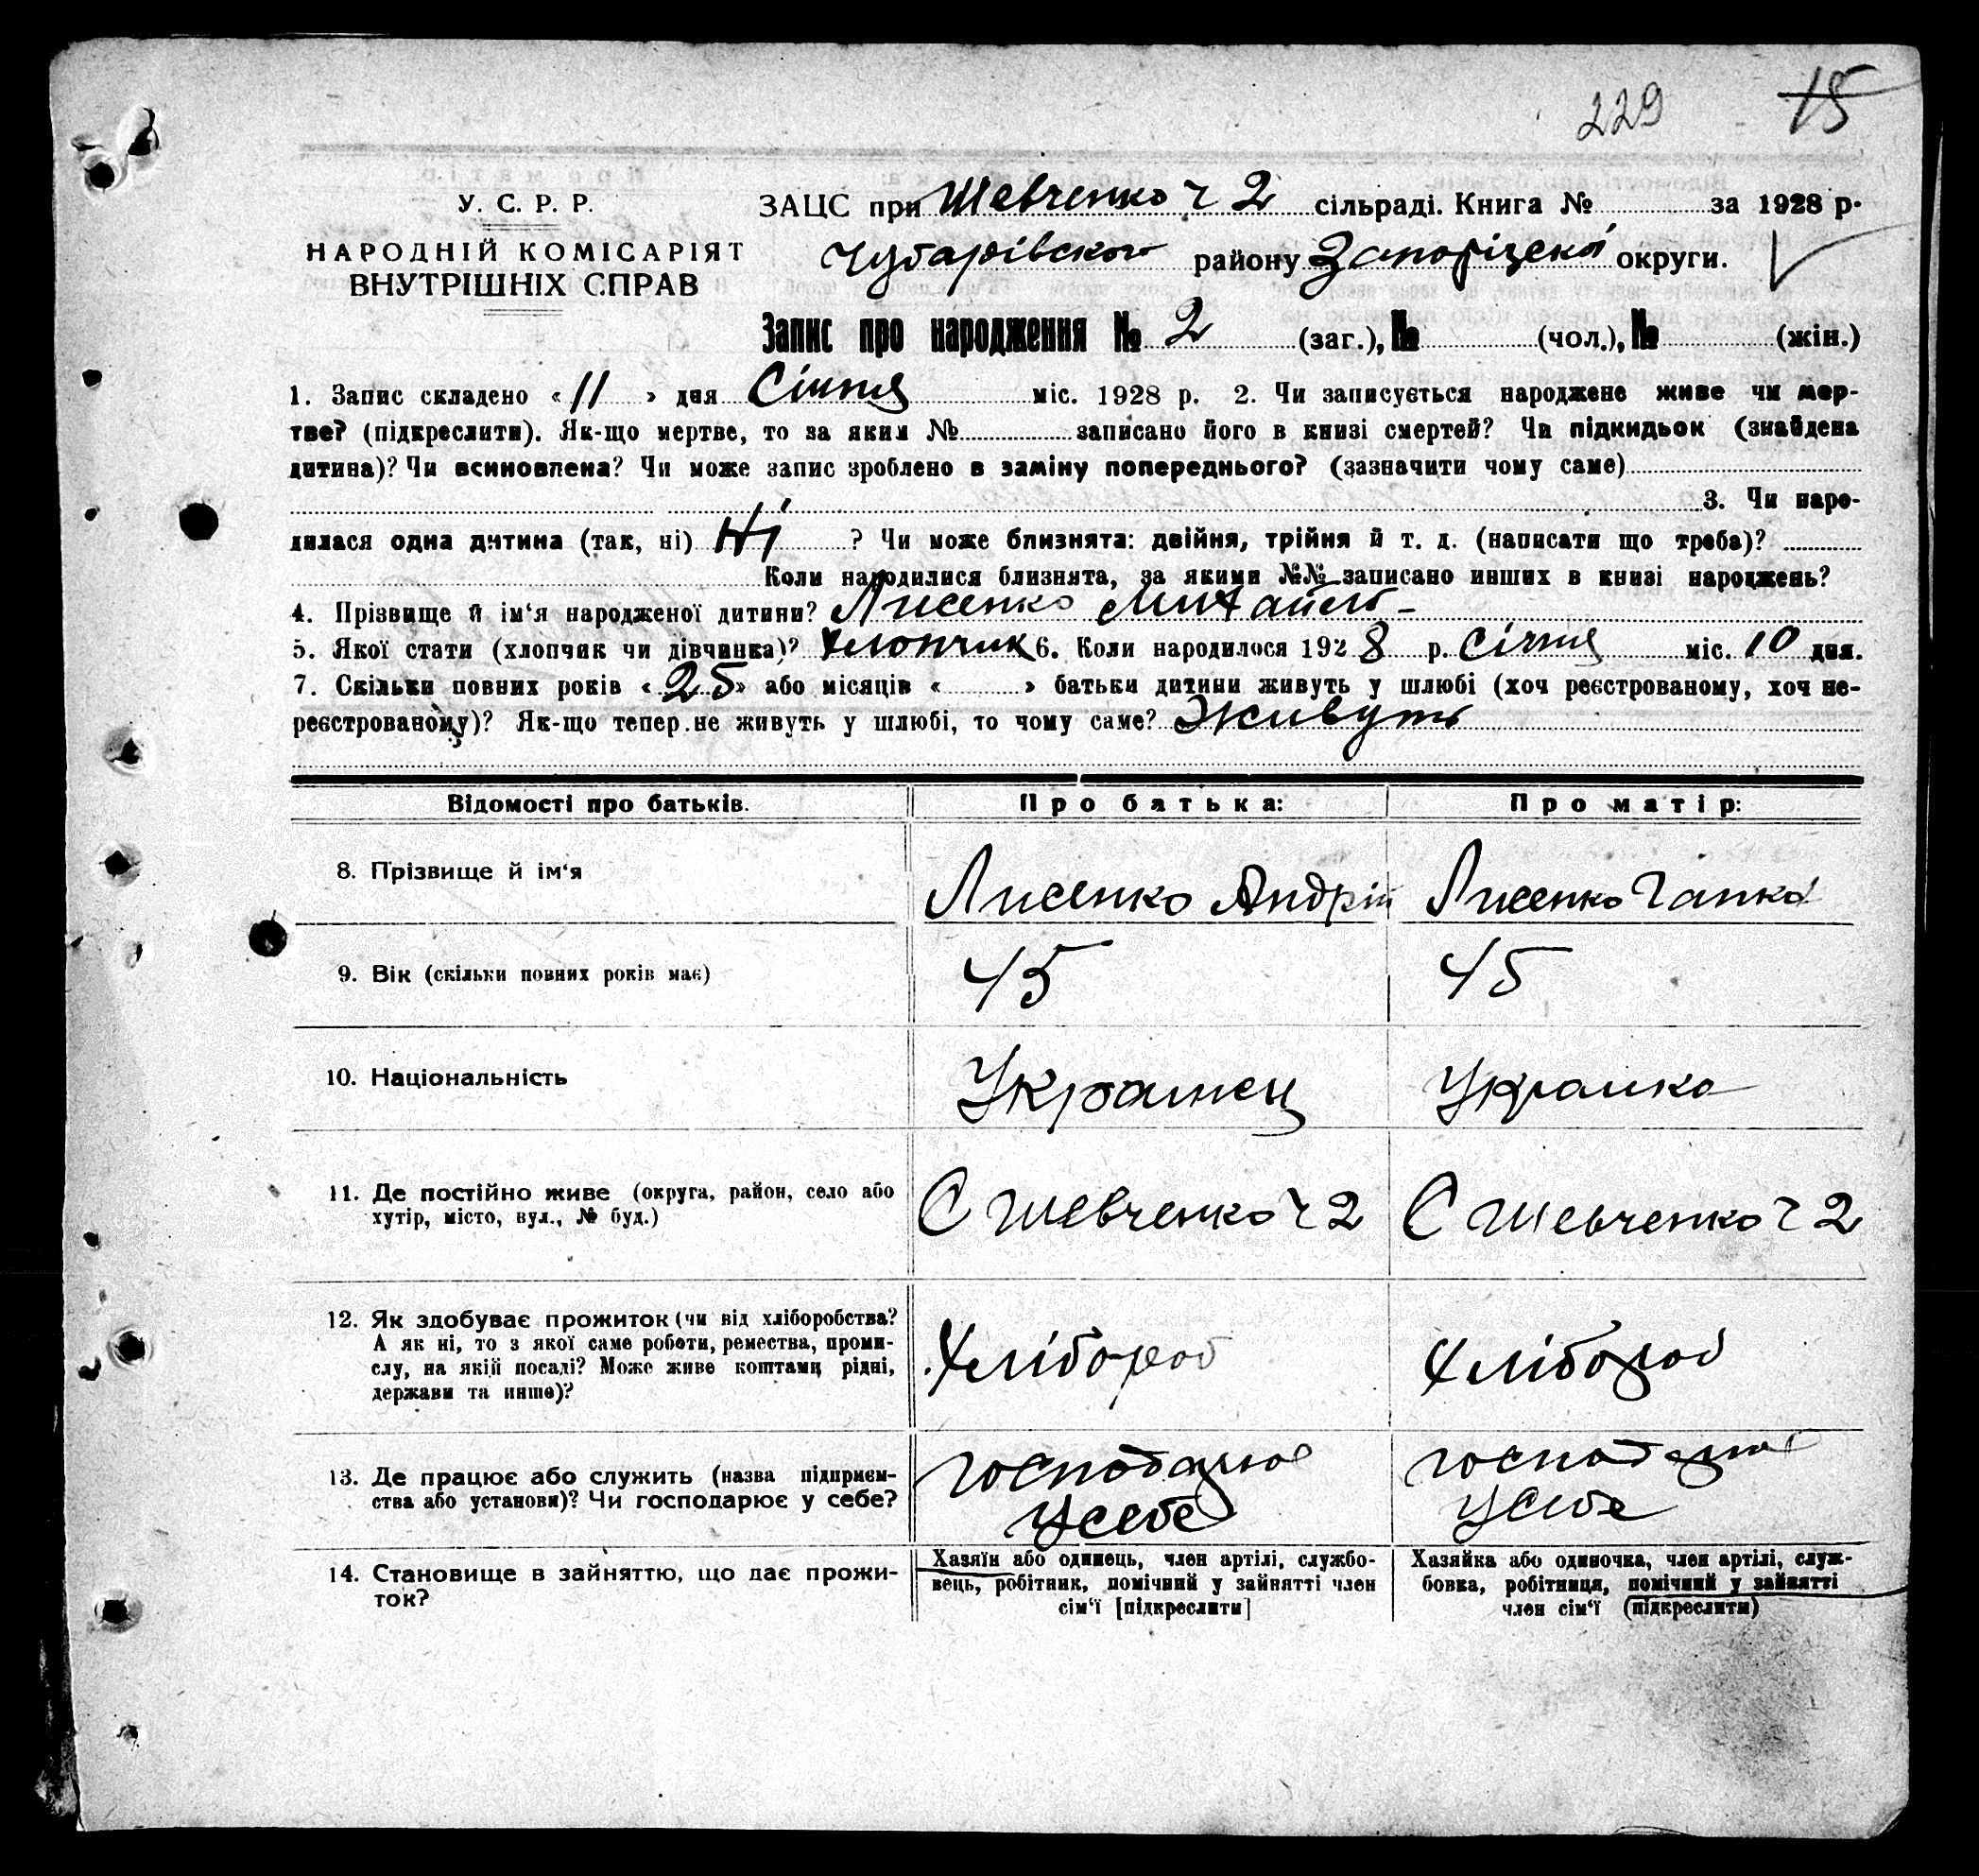 229 15
У. С. Р. Р.
НАРОДНІЙ КОМІСАРІЯТ
ВНУТРІШНІХ СПРАВ
ЗАЦС при Шевченко ч 2 сільраді. Книга № за 1928 р.
Чубарівського району Запоріцекої округи.
Запис про народження № 2 (заг.), № (чол.), № (жін.)
1. Запис складено « 11 » дня Січня міс. 1928 р. 2. Чи записується народжене живе чи мер-
тве? (підкреслити). Як-що мертве, то за яким № записано його в книзі смертей? Чи підкидьок (знайдена
дитина)? Чи всиновлена? Чи може запис зроблено в заміну попереднього? (зазначити чому саме)
3. Чи наро-
дилася одна дитина (так, ні) Ні ? Чи може близнята: двійня, трійня й т. д. (написати що треба)?
Коли народилися близнята, за якими №№ записано инших в книзі народжень?
4. Прізвище й ім'я народженої дитини? Лисенко Михайло
5. Якої стати (хлопчик чи дівчинка)? Хлопчик 6. Коли народилося 1928 р. Січня міс. 10 дня.
7. Скільки повних років « 25 » або місяців « » батьки дитини живуть у шлюбі (хоч реєстрованому, хоч не-
реєстрованому)? Як-що тепер не живуть у шлюбі, то чому саме? Живуть
Відомості про батьків. Про батька: Про матір:
8. Прізвище й ім'я Лисенко Андрій Лисенко Гапка
9. Вік (скільки повних років має) 45 45
10. Національність Украинец Украинка
11. Де постійно живе (округа, район, село або
хутір, місто, вул., № буд.)
С Шевченко ч 2 С Шевченко ч 2
12. Як здобуває прожиток (чи від хліборобства?
А як ні, то з якої саме роботи, ремества, проми-
слу, на якій посаді? Може живе коштами рідні,
держави та инше)?
Хлібороб Хлібороб
13. Де працює або служить (назва підприєм-
ства або установи)? Чи господарює у себе?
господарює господарює
у себе у себе
14. Становище в зайняттю, що дає прожи-
ток?
Хазяїн або одинець, член артілі, службо-
вець, робітник, помічний у зайнятті член
сім'ї [підкреслити]
Хазяйка або одиночка, член артілі, служ-
бовка, робітниця, помічний у зайнятті
член сім'ї (підкреслити)